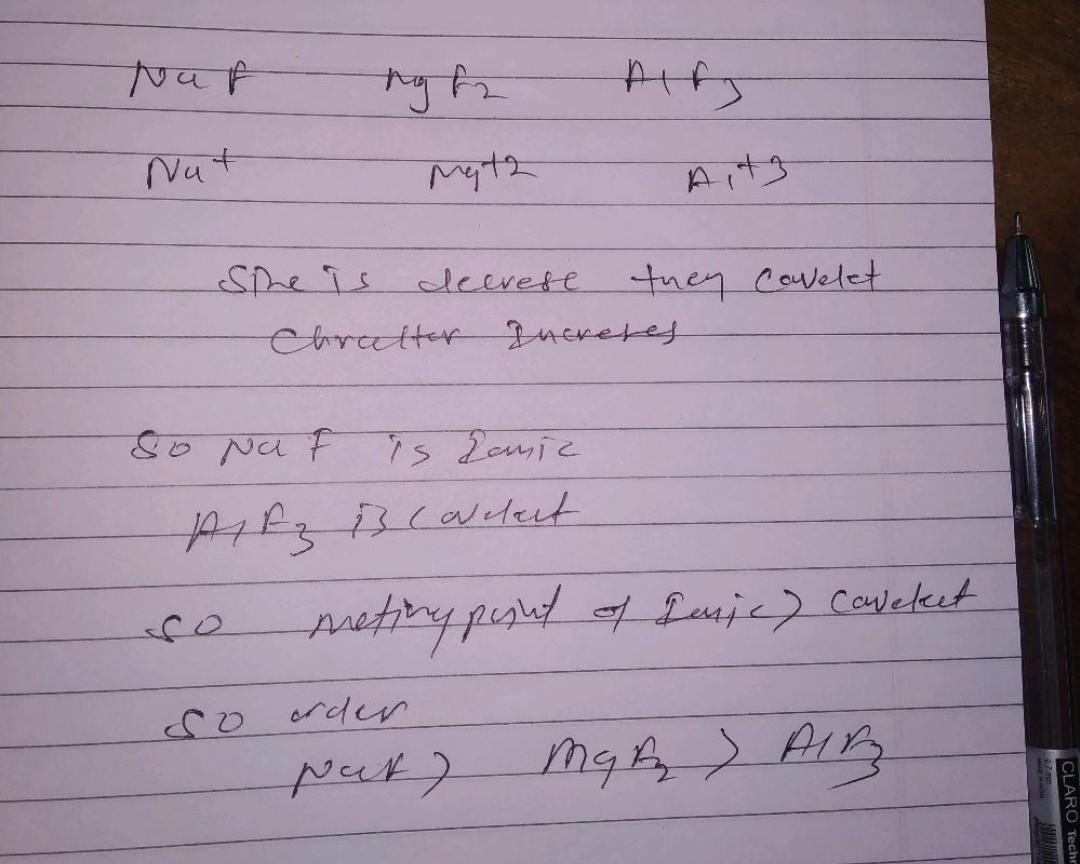 NaF MgF2 AlF3
Na+ Mg+2 Al+3
Size is decrese they Covelet
Chrcelter Increses
So NaF is Ionic
AlF3 is Covelent
so meting point of Ionic > Covelent
so order
NaF > MgF2 > AlF3
CLARO Tech